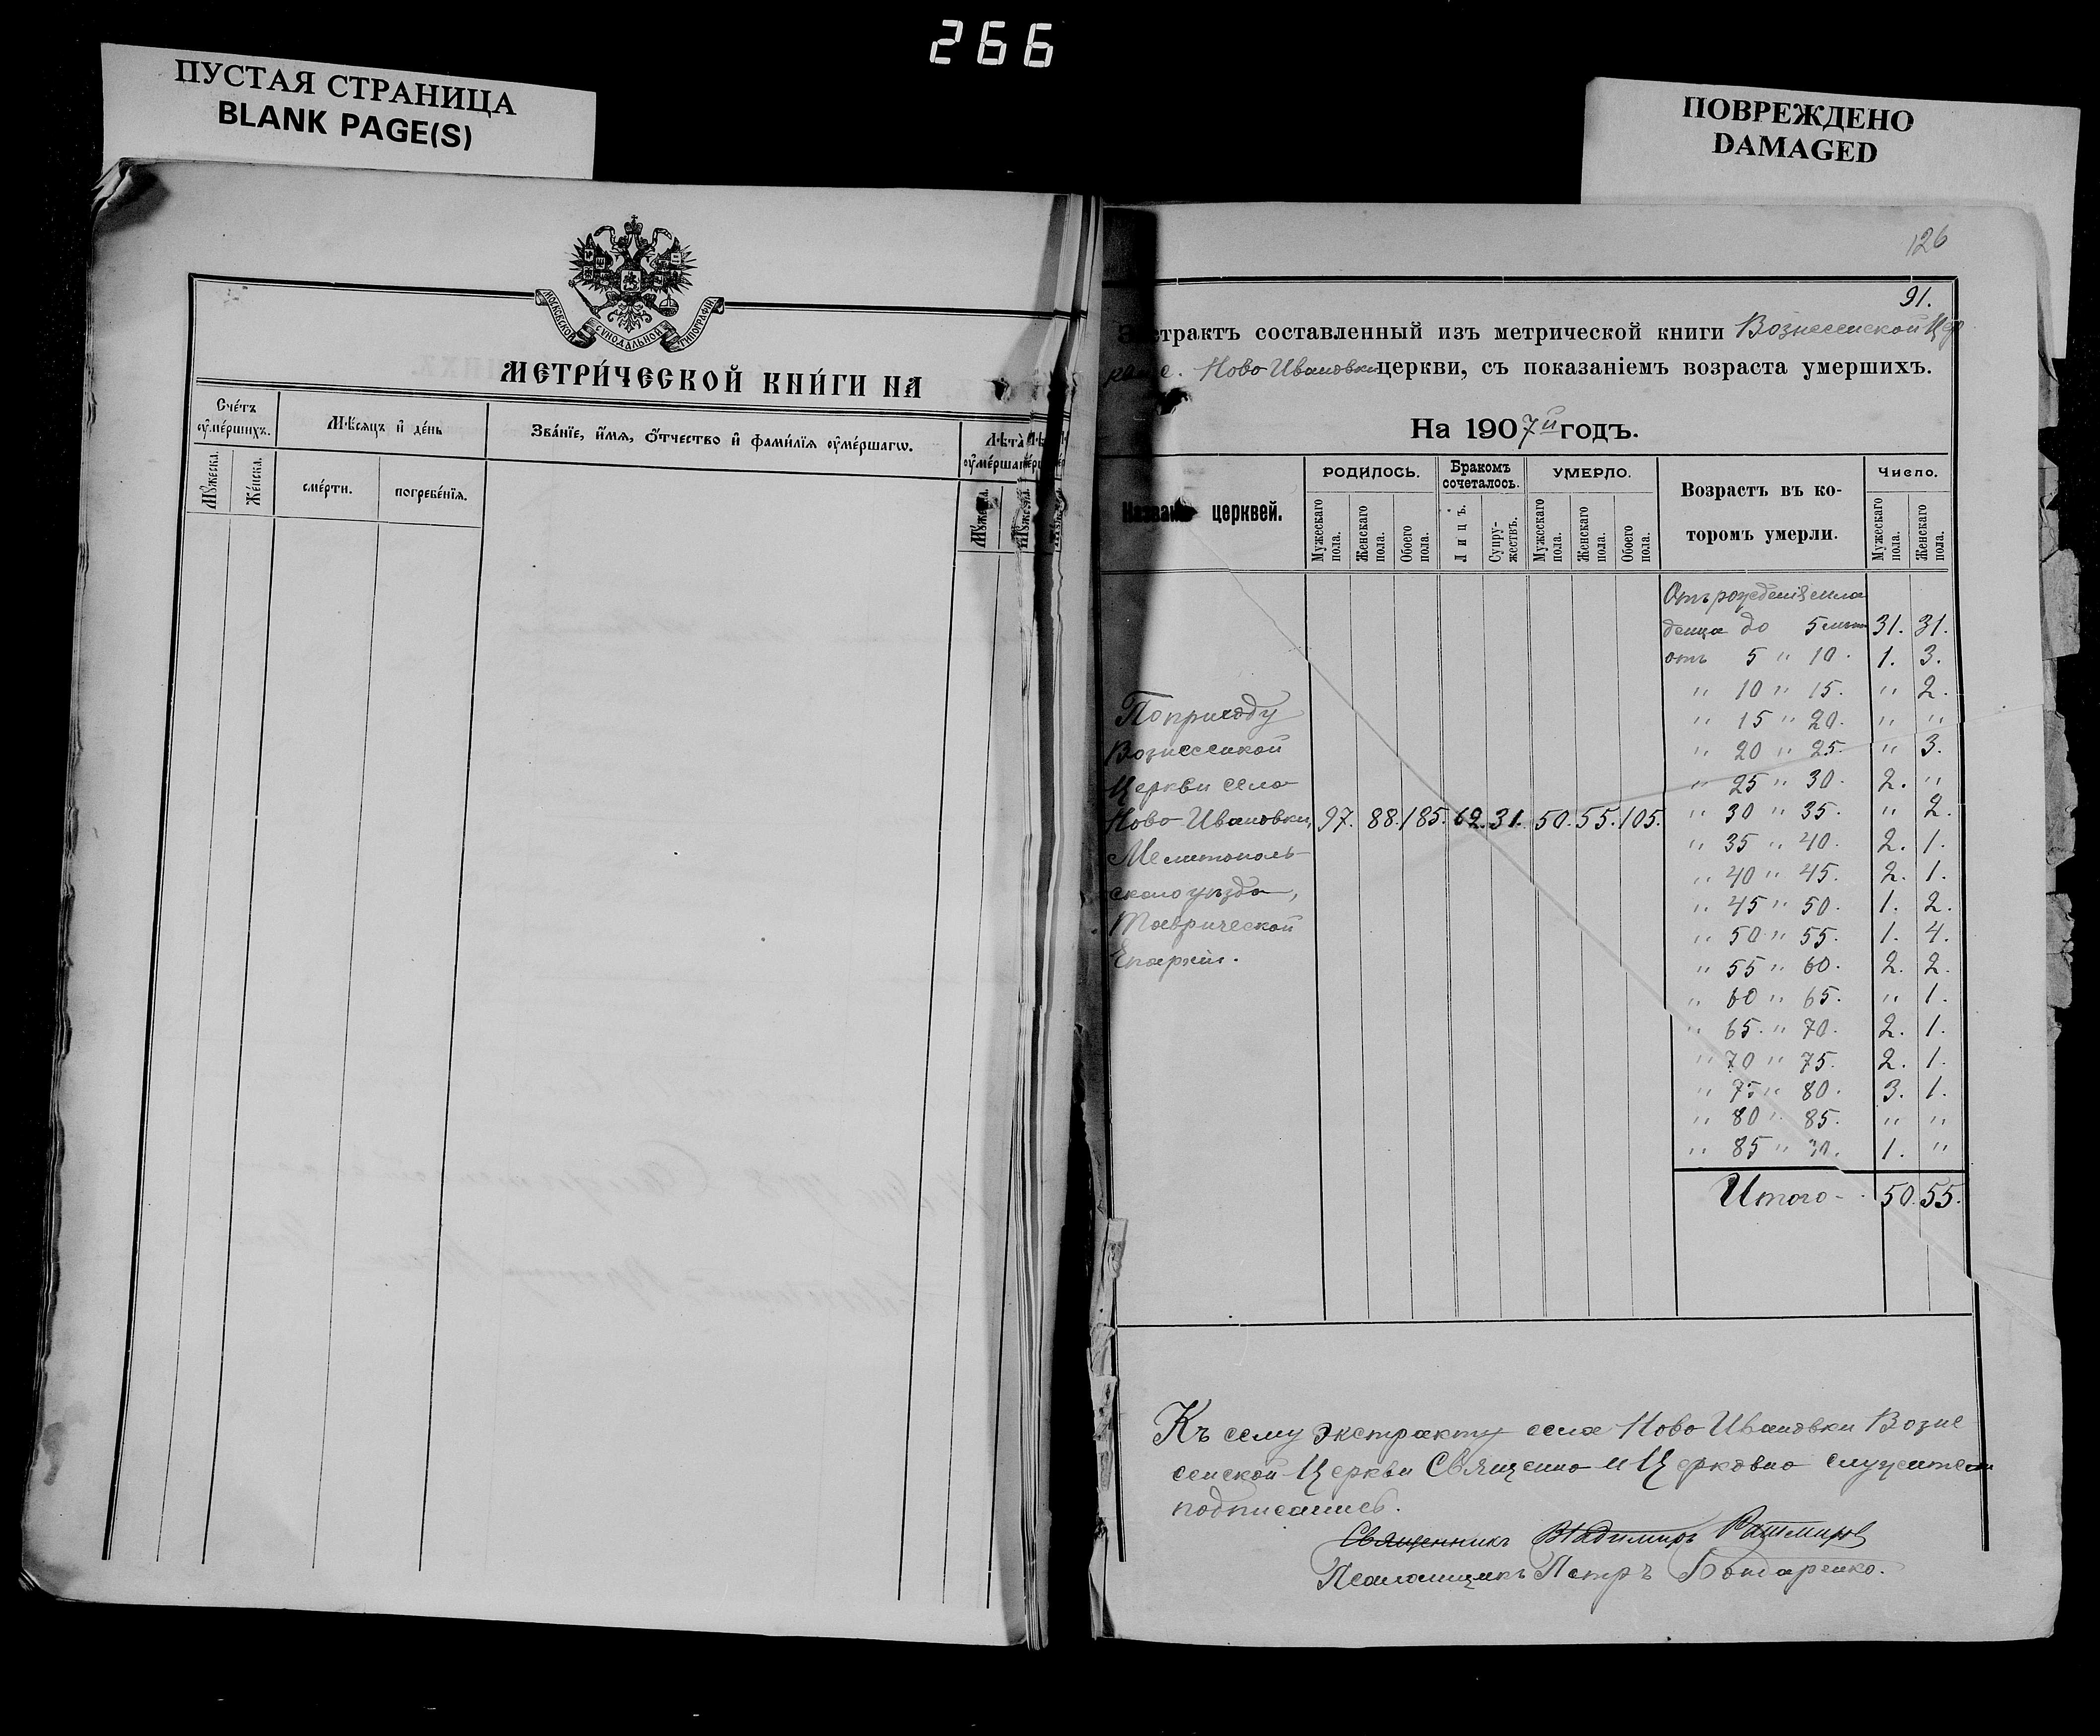 266
ПУСТАЯ СТРАНИЦА
BLANK PAGE(S)
ПОВРЕЖДЕНО
DAMAGED
МОСКОВСКОЙ СѴНОДАЛЬНОЙ ТИПОГРАФІИ
МЕТРИ́ЧЕСКОЙ КНИ́ГИ НА
Сче́тъ ѹ҆ме́ршихъ.
Мѣ́сяцъ и҆ де́нь
Зва́нїе, и҆́мя, ѻ҆́тчество и҆ фами́лїя ѹ҆ме́ршагѡ.
Лѣта̀
Мꙋ́жеска.
Же́нска.
сме́рти.
погребе́нїя.
126
91.
Экстрактъ составленный изъ метрической книги Вознесенской Цер
кви с. Ново Ивановки церкви, съ показаніемъ возраста умершихъ.
На 1907й годъ.
Названіе церквей.
РОДИЛОСЬ.
Бракомъ сочеталось.
УМЕРЛО.
Возрастъ въ ко-
торомъ умерли.
Число.
Мужескаго пола.
Женскаго пола.
Обоего пола.
Лицъ.
Супру-жествъ.
Мужескаго пола.
Женскаго пола.
Обоего пола.
Мужескаго пола.
Женскаго пола.
По приходу
Вознесенской
Церкви села
Ново Ивановки, 97. 88. 185. 62. 31. 50. 55. 105.
Мелитополь
скаго уѣзда,
Таврической
Епархіи.
Отъ рожденія мла
денца до 5 лѣтъ 31. 31.
отъ 5 " 10. 1. 3.
" 10 " 15. " 2.
" 15 " 20. " "
" 20 " 25. " 3.
" 25 " 30. 2. "
" 30 " 35. " 2.
" 35 " 40. 2. 1.
" 40 " 45. 2. 1.
" 45 " 50. 1. 2.
" 50 " 55. 1. 4.
" 55 " 60. 2. 2.
" 60 " 65. " 1.
" 65. " 70. 2. 1.
" 70 " 75. 2. 1.
" 75 " 80. 3. 1.
" 80 " 85. " "
" 85 " 90. 1. "
Итого - 50. 55.
Къ сему экстракту села Ново Ивановки Возне
сенской Церкви Священно и Церковно служители
подписались.
Священникъ Владимиръ
Псаломщикъ Петръ Бондаренко.